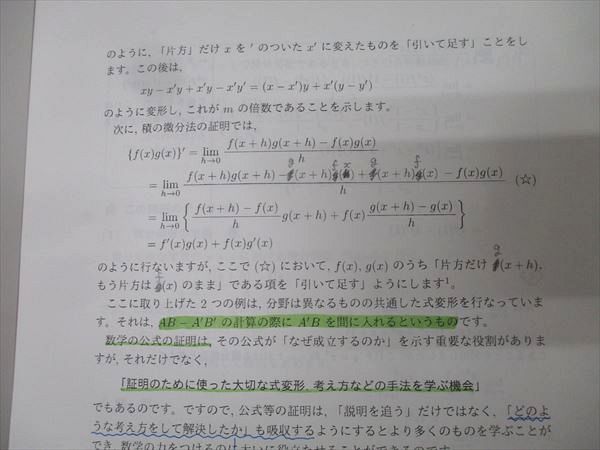 のように,「片方」だけ x を ′ のついた x′ に変えたものを「引いて足す」ことをし
ます。この後は,
xy − x′y + x′y − x′y′ = (x − x′)y + x′(y − y′)
のように変形し, これが m の倍数であることを示します。
次に, 積の微分法の証明では,
{f(x)g(x)}′ = lim_{h→0} \frac{f(x+h)g(x+h) − f(x)g(x)}{h}
= lim_{h→0} \frac{f(x+h)g(x+h) − g(x+h)f(x) + g(x+h)f(x) − f(x)g(x)}{h} (☆)
= lim_{h→0} { \frac{f(x+h) − f(x)}{h} g(x+h) + f(x) \frac{g(x+h) − g(x)}{h} }
= f′(x)g(x) + f(x)g′(x)
のように行ないますが, ここで (☆) において, f(x), g(x) のうち「片方だけ g(x+h),
もう片方は f(x) のまま」である項を「引いて足す」ようにします¹。
ここに取り上げた 2 つの例は, 分野は異なるものの共通した式変形を行なっていま
す。それは, AB − A′B′ の計算の際に A′B を間に入れるというものです。
数学の公式の証明は, その公式が「なぜ成立するのか」を示す重要な役割がありま
すが, それだけでなく,
「証明のために使った大切な式変形, 考え方などの手法を学ぶ機会」
でもあるのです。ですので, 公式等の証明は,「説明を追う」だけではなく,「どのよ
うな考え方をして解決したか」も吸収するようにするとより多くのものを学ぶことが
でき, 数学の力をつけるのに大いに役立たせることができるのです。